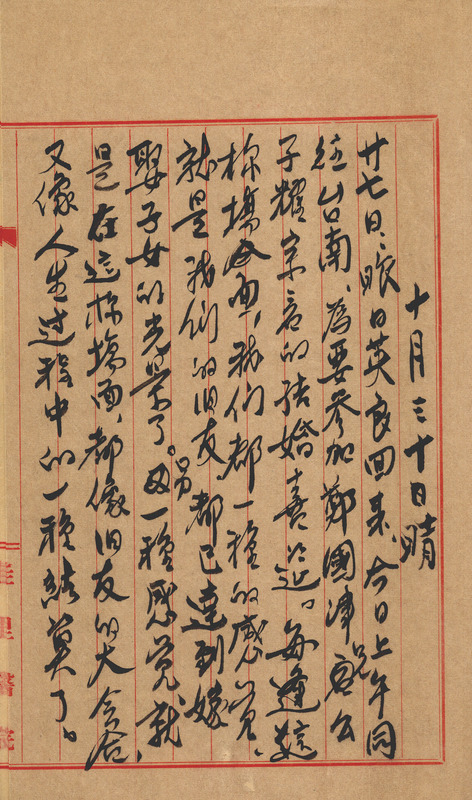 十月三十日晴
廿七日、眼日英良回来、今日上午同
往台南、為要參加鄭國津兄的公
子耀宗君的結婚喜筵。每逢這
樣場面、我们都一種的感覚、
就是我们的旧友都已達到嫁
娶子女的光景了。另一種感覚、就
是在這樣場面、都像旧友的大会合、
又像人生过程中的一種結算了。
佳里醫院